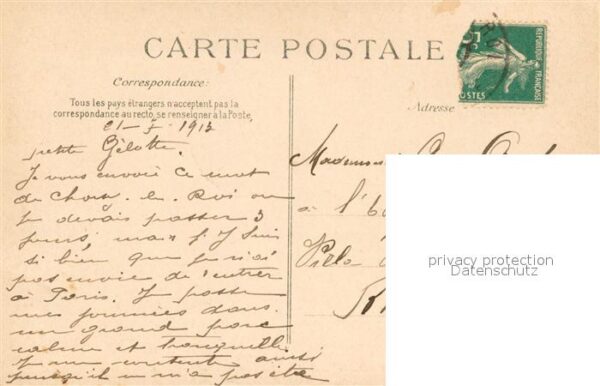 CARTE POSTALE
RÉPUBLIQUE FRANÇAISE
5c
POSTES
Correspondance:
Adresse
Tous les pays étrangers n'acceptent pas la
correspondance au recto, se renseigner à la Poste,
21-5-1912
petite Gélotte.
Je vous envoie ce mot
de Choisy. le. Roi ou
je devais passer 3
jours; mais j'y suis
si bien que je n'ai
pas envie de rentrer
à Paris. Je passe
mes journées dans
un grand parc
calme et tranquille
Je me contente aussi
puisqu'il m'a pas été
Mademoiselle
à l'
Villa
privacy protection
Datenschutz